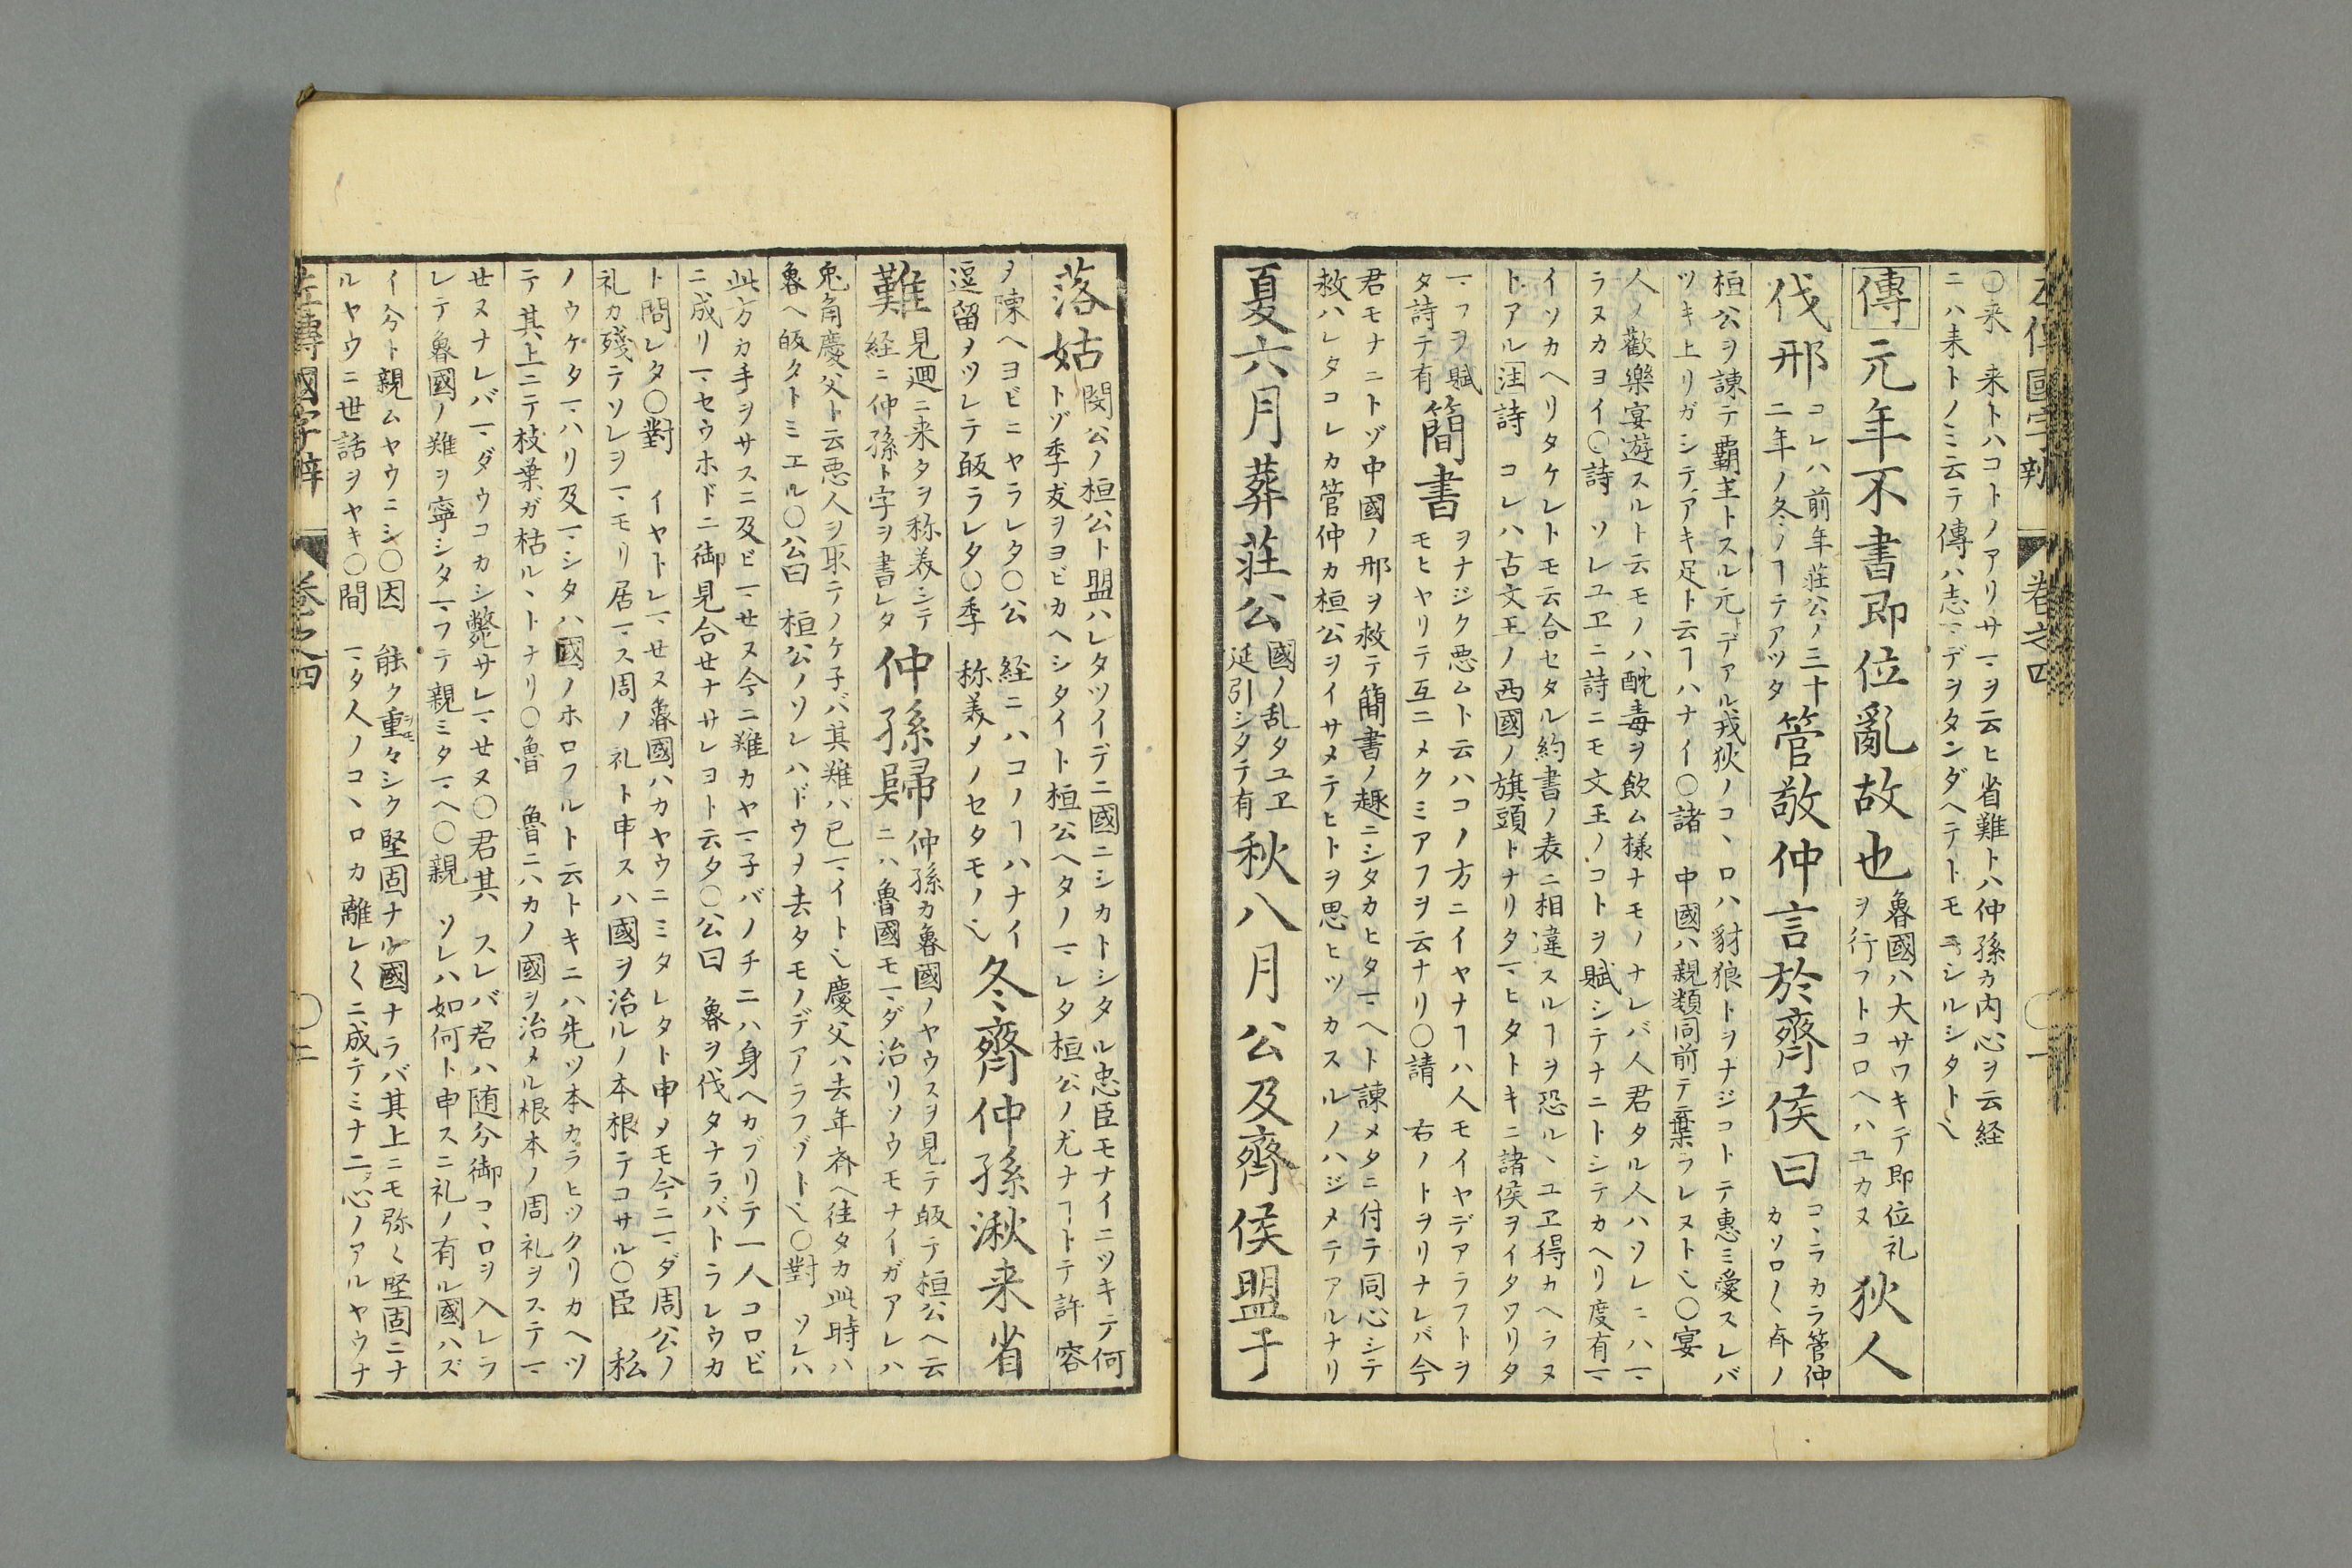 左傳國字辨 卷之四 〇一
〇来 来トハコトノアリサマヲ云ヒ省難トハ仲孫カ内心ヲ云経
ニハ来トノミ云テ傳ハ志マデヲタンダヘテトモニシルシタト也
傳 元年不書即位亂故也
魯國ハ大サワキデ即位礼
ヲ行フトコロヘハユカヌ
狄人
伐邢
コレハ前年荘公ノ三十
二年ノ冬ノヿテアツタ
管敬仲言於齊侯曰
コヽラカラ管仲
カソロ〱斉ノ
桓公ヲ諌テ覇主トスル元デアル戎狄ノコヽロハ豺狼トヲナジコトテ惠ミ愛スレバ
ツキ上リガシテアキ足ト云ヿハナイ〇諸 中國ハ親類同前テ棄ラレヌト也〇宴
人ノ歡樂宴遊スルト云モノハ酖毒ヲ飲ム樣ナモノナレバ人君タル人ハソレニハマ
ラヌカヨイ〇詩 ソレユヱニ詩ニモ文王ノコトヲ賦シテナニトシテカヘリ度有マ
イソカヘリタケレトモ云合セタル約書ノ表ニ相違スルヿヲ恐ルヽユヱ得カヘラヌ
トアル 注詩 コレハ古文王ノ西國ノ旗頭トナリタマヒタトキニ諸侯ヲイタワリタ
マフヲ賦
タ詩テ有
簡書
ヲナジク悪ムト云ハコノ方ニイヤナヿハ人モイヤデアラフトヲ
モヒヤリテ互ニメクミアフヲ云ナリ〇請 右ノトヲリナレバ今
君モナニトゾ中國ノ邢ヲ救テ簡書ノ趣ニシタカヒタマヘト諌メタニ付テ同心シテ
救ハレタコレカ管仲カ桓公ヲイサメテヒトヲ思ヒツカスルノハジメテアルナリ
夏六月葬莊公
國ノ乱タユヱ
延引シタテ有
秋八月公及齊侯盟于
落姑
閔公ノ桓公ト盟ハレタツイデニ國ニシカトシタル忠臣モナイニツキテ何
トゾ季友ヲヨビカヘシタイト桓公ヘタノマレタ桓公ノ尤ナヿトテ許容
ノ陳ヘヨビニヤラレタ〇公 経ニハコノヿハナイ
逗留メツレテ皈ラレタ〇季 称美メノセタモノ也
冬齊仲孫湫来省
難
見廻ニ来タヲ称美シテ
経ニ仲孫ト字ヲ書レタ
仲孫歸
仲孫カ魯國ノヤウスヲ見テ皈テ桓公ヘ云
ニハ魯國モマダ治リソウモナイガアレハ
兎角慶父ト云悪人ヲ取テノケ子バ其難ハ已マイト也慶父ハ去年斉ヘ往タカ此時ハ
魯ヘ皈タトミエル〇公曰 桓公ノソレハドウヲ去タモノデアラフゾト也〇對 ソレハ
此方カ手ヲサスニ及ビマせヌ今ニ難カヤマ子バノチニハ身ヘカブリテ一人コロビ
ニ成リマせウホドニ御見合せナサレヨト云タ〇公曰 魯ヲ伐タナラバトラレウカ
ト問レタ〇對 イヤトレマせヌ魯國ハカヤウニミタレタト申メモ今ニマダ周公ノ
礼カ殘テソレヲマモリ居マス周ノ礼ト申スハ國ヲ治ルノ本根テコサル〇臣 私
ノウケタマハリ及マシタハ國ノホロフルト云トキニハ先ツ本カラヒツクリカヘツ
テ其上ニテ枝葉ガ枯ルヽトナリ〇魯 魯ニハカノ國ヲ治メル根本ノ周礼ヲステマ
せヌナレバマダウコカシ斃サレマせヌ〇君其 スレバ君ハ随分御コヽロヲ入レラ
レテ魯國ノ難ヲ寧シタマフテ親ミタマヘ〇親 ソレハ如何ト申スニ礼ノ有ル國ハズ
イ分ト親ムヤウニシ〇因 能ク重々シク堅固ナル國ナラバ其上ニモ弥〱堅固ニナ
ルヤウニ世話ヲヤキ〇間 マタ人ノコヽロカ離レ〱ニ成テミナ二心ノアルヤウナ
左傳國字辨 卷之四 〇二